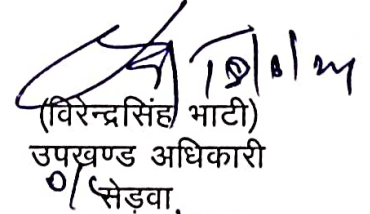 (विरेन्द्रसिंह भाटी)
उपखण्ड अधिकारी
सेड़वा,